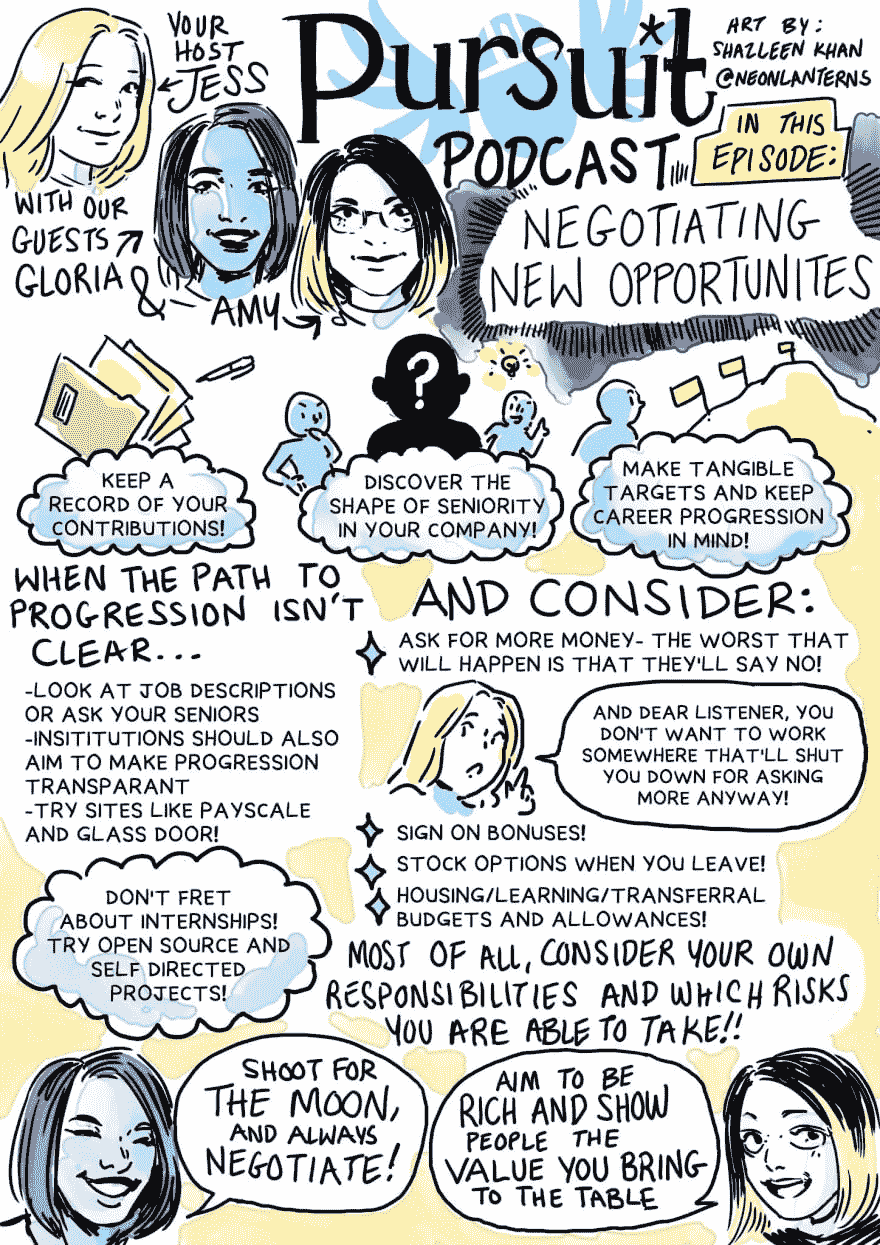 YOUR
HOST
JESS
Pursuit
PODCAST
ART BY:
SHAZLEEN KHAN
@NEONLANTERNS
IN THIS
EPISODE:
WITH OUR
GUESTS
GLORIA &
AMY
NEGOTIATING
NEW OPPORTUNITES
?
KEEP A
RECORD OF YOUR
CONTRIBUTIONS!
DISCOVER THE
SHAPE OF SENIORITY
IN YOUR COMPANY!
MAKE TANGIBLE
TARGETS AND KEEP
CAREER PROGRESSION
IN MIND!
WHEN THE PATH TO
PROGRESSION ISN'T
CLEAR...
-LOOK AT JOB DESCRIPTIONS
OR ASK YOUR SENIORS
-INSITITUTIONS SHOULD ALSO
AIM TO MAKE PROGRESSION
TRANSPARANT
-TRY SITES LIKE PAYSCALE
AND GLASS DOOR!
DON'T FRET
ABOUT INTERNSHIPS!
TRY OPEN SOURCE AND
SELF DIRECTED
PROJECTS!
AND CONSIDER:
ASK FOR MORE MONEY- THE WORST THAT
WILL HAPPEN IS THAT THEY'LL SAY NO!
AND DEAR LISTENER, YOU
DON'T WANT TO WORK
SOMEWHERE THAT'LL SHUT
YOU DOWN FOR ASKING
MORE ANYWAY!
SIGN ON BONUSES!
STOCK OPTIONS WHEN YOU LEAVE!
HOUSING/LEARNING/TRANSFERRAL
BUDGETS AND ALLOWANCES!
MOST OF ALL, CONSIDER YOUR OWN
RESPONSIBILITIES AND WHICH RISKS
YOU ARE ABLE TO TAKE!!
SHOOT FOR
THE MOON,
AND ALWAYS
NEGOTIATE!
AIM TO BE
RICH AND SHOW
PEOPLE THE
VALUE YOU BRING
TO THE TABLE